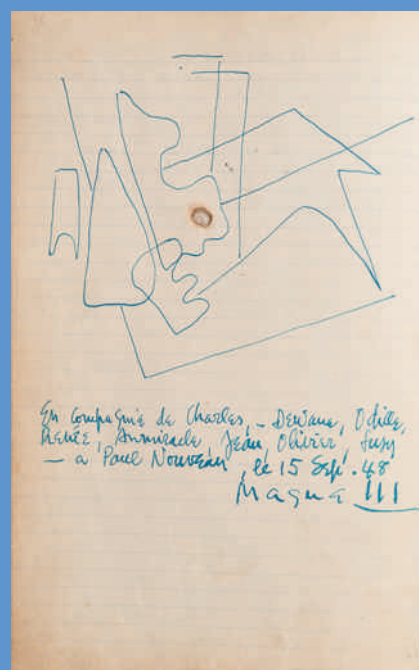 En Compagnie de Charles, – Dewane, Odille,
Renée, Jean, Olivier, Susy
— a Paul Nouveau, le 15 Sept. 48
Magna III